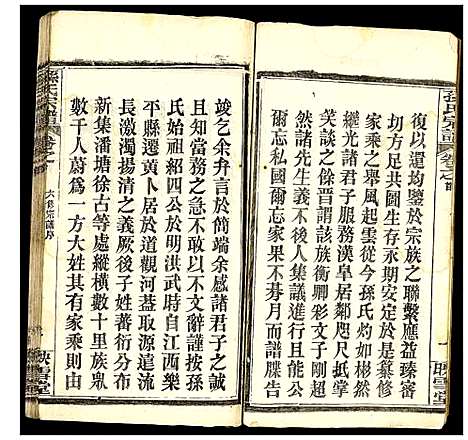 復以還均鑒於宗族之聯繫應益臻審
切方足共圖生存永期安定於是纂修
家乘之舉風起雲從今孫氏灼如彬然
繼光諸君子服務漢皐居鄰咫尺抵掌
談笑之餘晋謂該族衛卿彩文子建燦
然諸先生義不後人集議進行共襄厥
爾忘私國爾忘家不朞月而譜牒告
竣乞余弁言於簡端余感諸君子之誠
且知當務之急不敢以不文辭謹按孫
氏始祖紹四公於明洪武時自江西樂
平縣遷黃卜居於道觀河葢取源遠流
長激濁揚清之義厥後子姓蕃衍分布
新集潘塘徐古等處縱橫數十里族衆
數千人蔚爲一方大姓其有家乘則
六修宗譜序
孫氏宗譜
卷之首
映雪堂